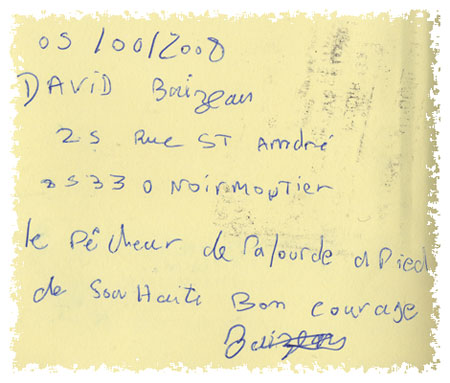 05/00/2008
DAVID Baizeau
25 Rue ST André
85330 Noirmoutier
le Pêcheur de Palourde a Pied
de Souhaite Bon courage
Baizeau